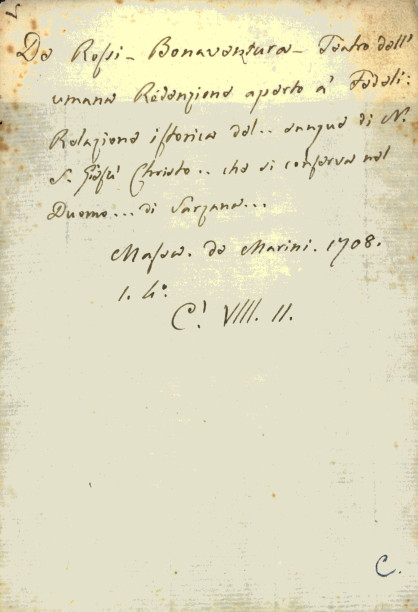 De Rossi - Bonaventura - Teatro dell'
umana Redenzione aperto a' Fedeli:
Relazione istorica del.. sangue di N.
S. Giesù Christo.. che si conserva nel
Duomo... di Sarzana...
Massa. de Marini. 1708.
1. 4.º
C! VIII. II.
C.